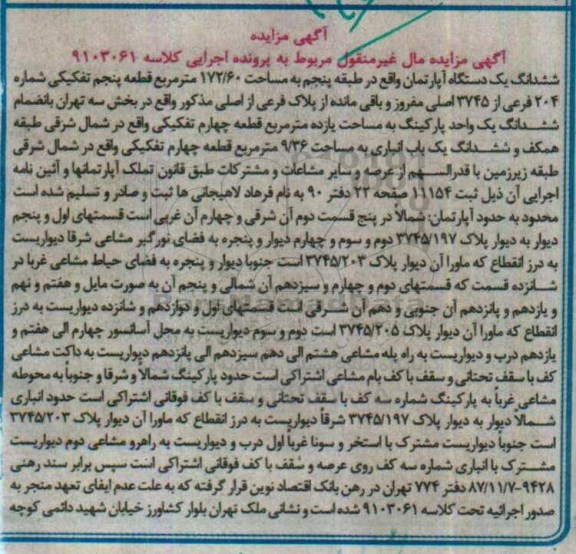 آگهی مزایده
آگهی مزایده مال غیرمنقول مربوط به پرونده اجرایی کلاسه ۹۱۰۳۰۶۱
ششدانگ یک دستگاه آپارتمان واقع در طبقه پنجم به مساحت ۱۷۲/۶۰ مترمربع قطعه پنجم تفکیکی شماره
۲۰۴ فرعی از ۳۷۴۵ اصلی مفروز و باقی مانده از پلاک فرعی از اصلی مذکور واقع در بخش سه تهران بانضمام
ششدانگ یک واحد پارکینگ به مساحت یازده مترمربع قطعه چهارم تفکیکی واقع در شمال شرقی طبقه
همکف و ششدانگ یک باب انباری به مساحت ۹/۳۶ مترمربع قطعه چهارم تفکیکی واقع در شمال شرقی
طبقه زیرزمین با قدرالسهم از عرصه و سایر مشاعات و مشترکات طبق قانون تملک آپارتمانها و آئین نامه
اجرایی آن ذیل ثبت ۱۱۱۵۴ صفحه ۲۲ دفتر ۹۰ به نام فرهاد لاهیجانی ها ثبت و صادر و تسلیم شده است
محدود به حدود آپارتمان: شمالاً در پنج قسمت دوم آن شرقی و چهارم آن غربی است قسمتهای اول و پنجم
دیوار به دیوار پلاک ۳۷۴۵/۱۹۷ دوم و سوم و چهارم دیوار و پنجره به فضای نورگیر مشاعی شرقا دیواریست
به درز انقطاع که ماورا آن دیوار پلاک ۳۷۴۵/۲۰۳ است جنوبا دیوار و پنجره به فضای حیاط مشاعی غربا در
شانزده قسمت که قسمتهای دوم و چهارم و سیزدهم آن شمالی و پنجم آن به صورت مایل و هفتم و نهم
و یازدهم و پانزدهم آن جنوبی و دهم آن شرقی است قسمتهای اول و دوازدهم و شانزده دیواریست به درز
انقطاع که ماورا آن دیوار پلاک ۳۷۴۵/۲۰۵ است دوم و سوم دیواریست به محل آسانسور چهارم الی هفتم و
یازدهم درب و دیواریست به راه پله مشاعی هشتم الی دهم سیزدهم الی پانزدهم دیواریست به داکت مشاعی
کف با سقف تحتانی و سقف با کف بام مشاعی اشتراکی است حدود پارکینگ شمالاً و شرقا و جنوباً به محوطه
مشاعی غرباً به پارکینگ شماره سه کف با سقف تحتانی و سقف با کف فوقانی اشتراکی است حدود انباری
شمالاً دیوار به دیوار پلاک ۳۷۴۵/۱۹۷ شرقاً دیواریست به درز انقطاع که ماورا آن دیوار پلاک ۳۷۴۵/۲۰۳
است جنوباً دیواریست مشترک با استخر و سونا غرباً اول درب و دیواریست به راهرو مشاعی دوم دیواریست
مشترک با انباری شماره سه کف روی عرصه و سقف با کف فوقانی اشتراکی است سپس برابر سند رهنی
۹۴۲۸-۸۷/۱۱/۷ دفتر ۷۷۴ تهران در رهن بانک اقتصاد نوین قرار گرفته که به علت عدم ایفای تعهد منجر به
صدور اجرائیه تحت کلاسه ۹۱۰۳۰۶۱ شده است و نشانی ملک تهران بلوار کشاورز خیابان شهید دائمی کوچه